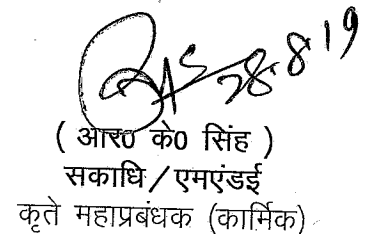 28.8.19
( आर0 के0 सिंह )
सकाधि / एमएंडई
कृते महाप्रबंधक (कार्मिक)